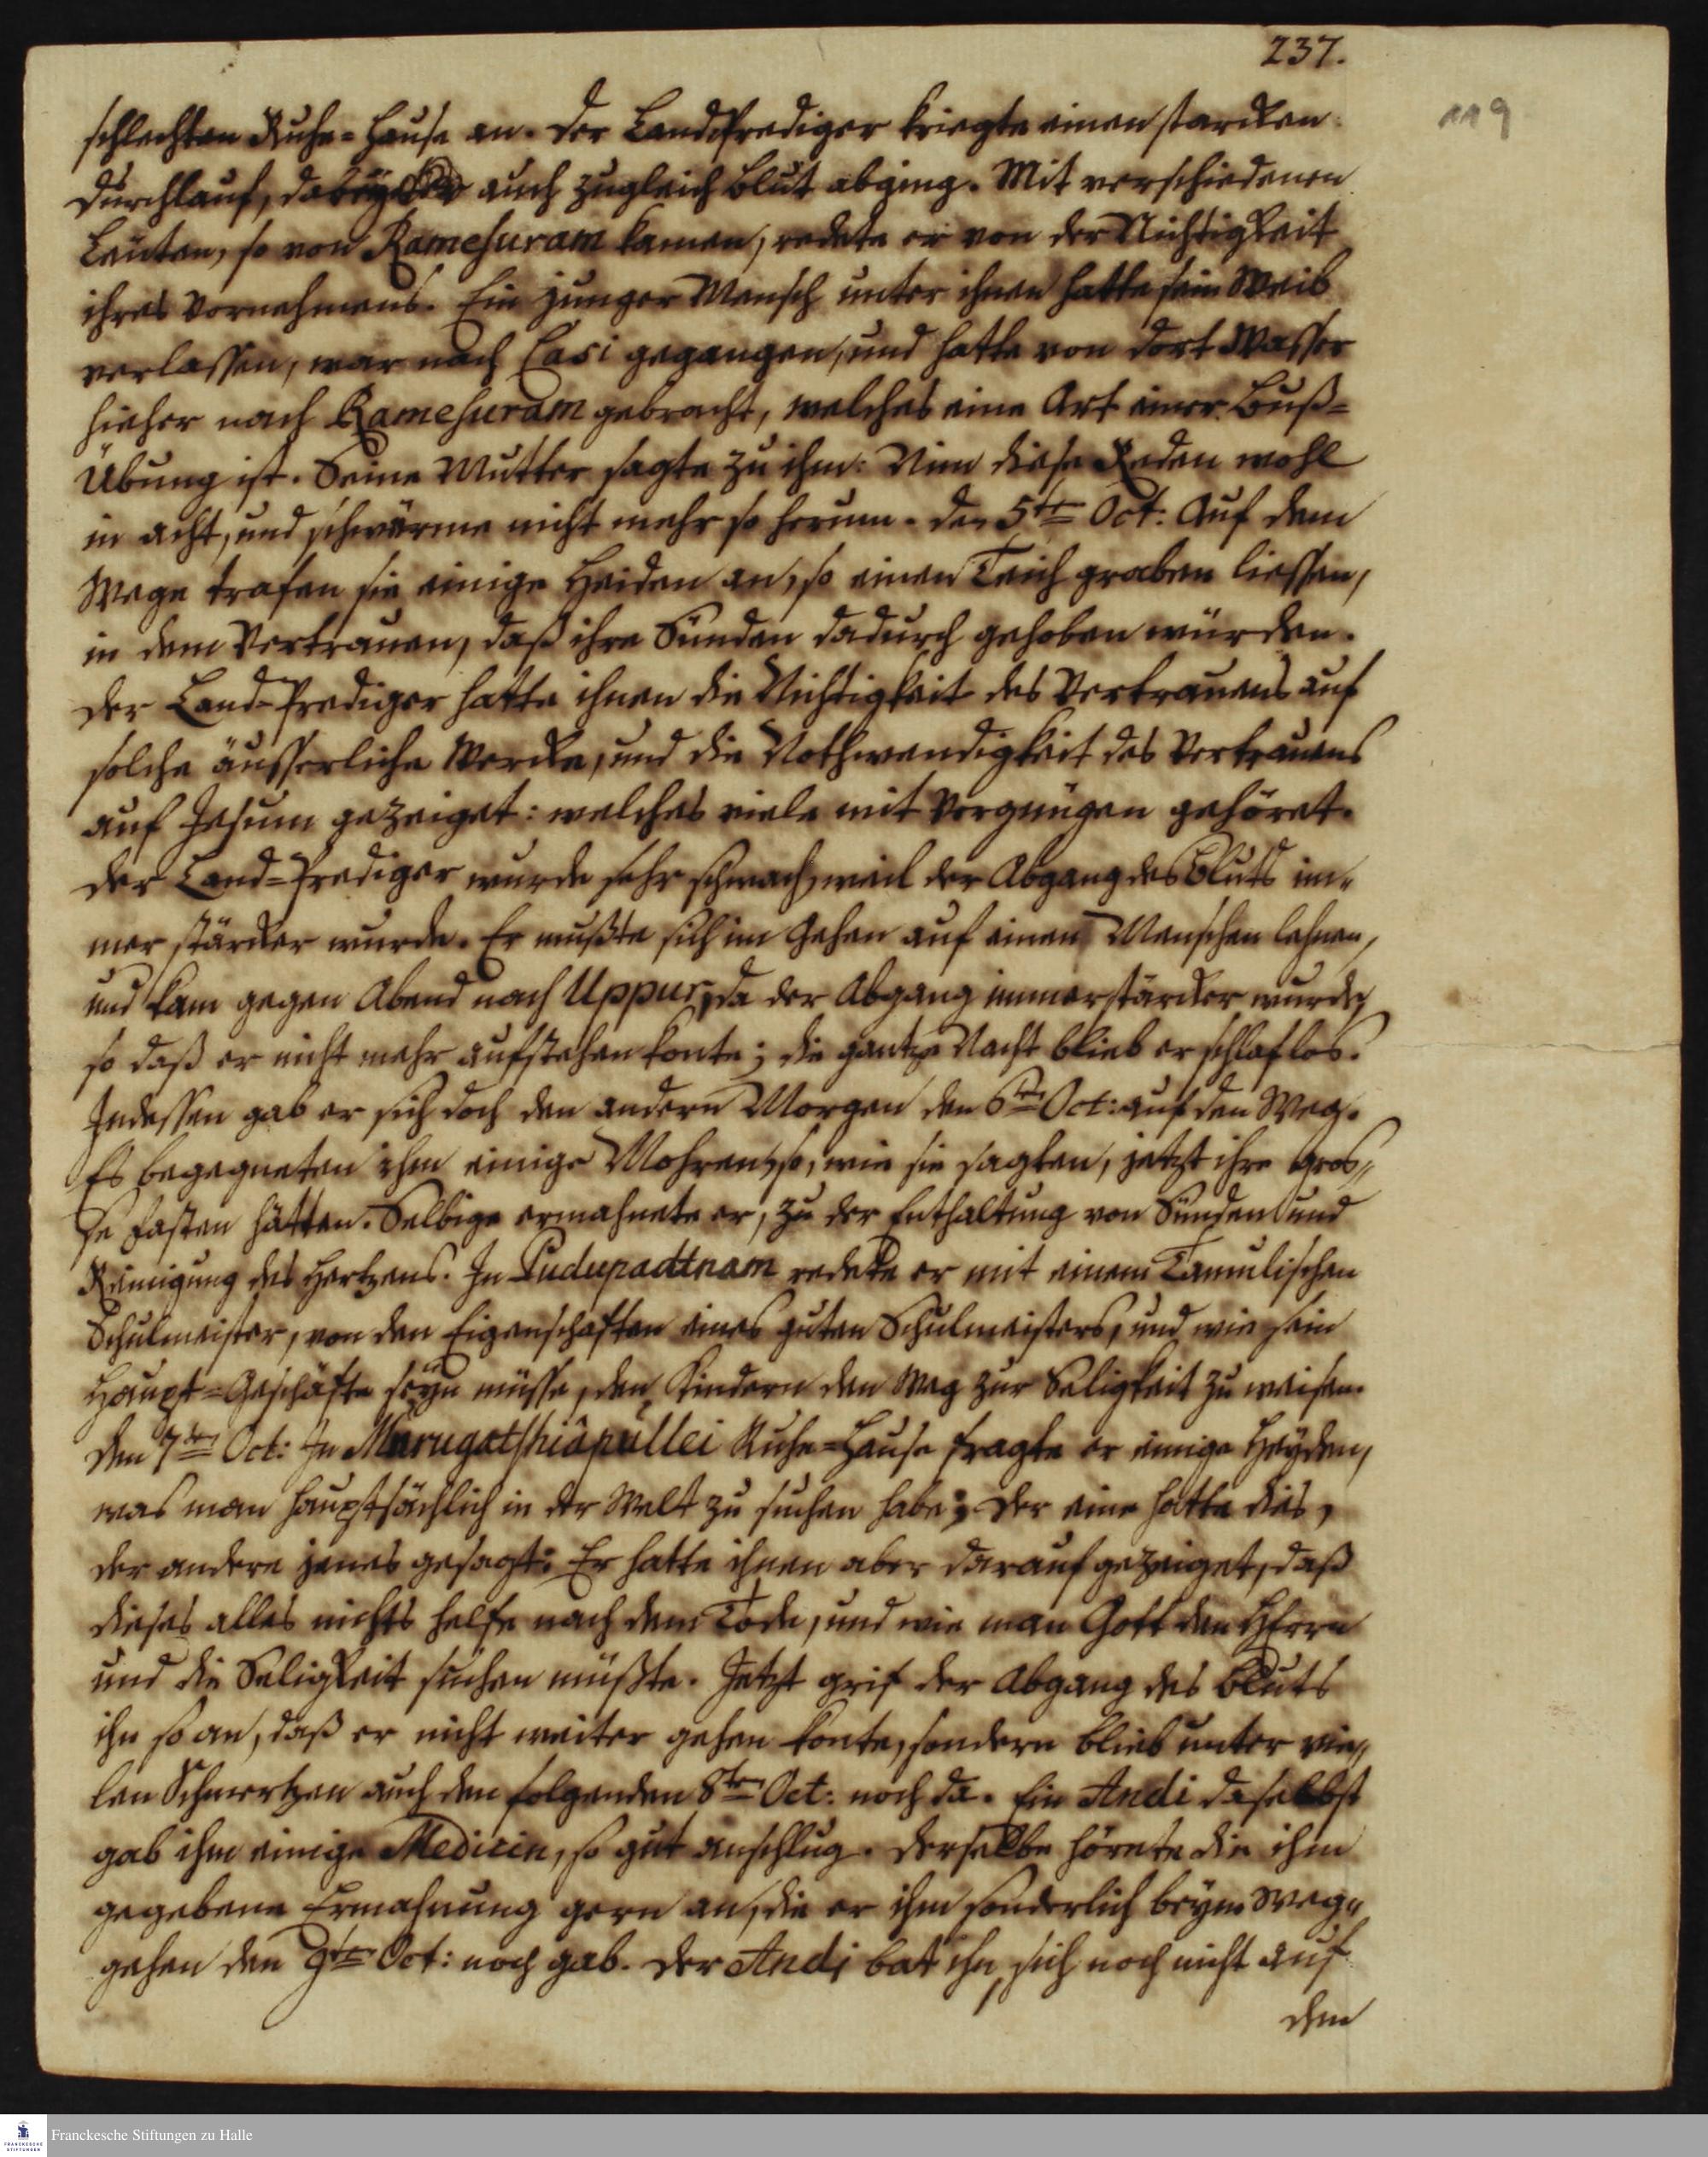 237.
119
schlechten Ruhe=Hause an. Der LandPrediger kriegte einen starcken
Durchlauf, dabey auch zugleich Blut abging. Mit verschiedenen
Leuten, so von Ramesuram kamen, redete er von der Nichtigkeit
ihres Vornehmens. Ein junger Mensch unter ihnen hatte sein Weib
verlassen, war nach Casi gegangen, und hatte von dort Wasser
hieher nach Ramesuram gebracht, welches eine Art einer Buß=
Übung ist. Seine Mutter sagte zu ihm: Nim diese Reden wohl
in acht, und schwärme nicht mehr so herum. Den 5ten Oct: Auf dem
Wege trafen sie einige Heiden an, so einen Teich graben liessen,
in dem Vertrauen, daß ihre Sünden dadurch gehoben würden.
Der Land=Prediger hatte ihnen die Nichtigkeit des Vertrauens auf
solche äusserliche Wercke, und die Nothwendigkeit des Vertrauens
auf Jesum gezeiget: welches viele mit Vergnügen gehöret.
Der Land=Prediger wurde sehr schwach, weil der Abgang des Bluts im=
mer stärcker wurde. Er mußte sich im Gehen auf einen Menschen lehnen,
und kam gegen Abend nach Uppur, da der Abgang immer stärcker wurde,
so daß er nicht mehr aufstehen konte; die gantze Nacht blieb er schlaflos.
Indessen gab er sich doch den andern Morgen den 6ten Oct: auf den Weg.
Es begegneten ihm einige Mohren, so, wie sie sagten, jetzt ihre gros=
se Fasten hätten. Selbige ermahnete er, zu der Enthaltung von Sünden und
Reinigung des Hertzens. In Pudupadtnam redete er mit einem Tamulischen
Schulmeister, von den Eigenschaften eines guten Schulmeisters, und wie sein
Haupt=Geschäfte seyn müsse, den Kindern den Weg zur Seligkeit zu weisen.
Den 7ten Oct: In Murugatshiâpullei Ruhe=Hause fragte er einige Heyden,
was man hauptsächlich in der Welt zu suchen habe; Der eine hatte dies,
der andere jenes gesagt: Er hatte ihnen aber darauf gezeiget, daß
dieses alles nichts helfe nach dem Tode, und wie man Gott den HErrn
und die Seligkeit suchen müßte. Jetzt grif der Abgang des Bluts
ihn so an, daß er nicht weiter gehen konte, sondern blieb unter vie=
len Schmertzen auch den folgenden 8ten Oct: noch da. Ein Andi daselbst
gab ihm einige Medicin, so gut anschlug. Derselbe hörete die ihm
gegebene Ermahnung gern an, die er ihm sonderlich beym Weg=
gehen den 9ten Oct: noch gab. Der Andi bat ihn, sich noch nicht auf
den
Franckesche Stiftungen zu Halle
FRANCKESCHE
STIFTUNGEN